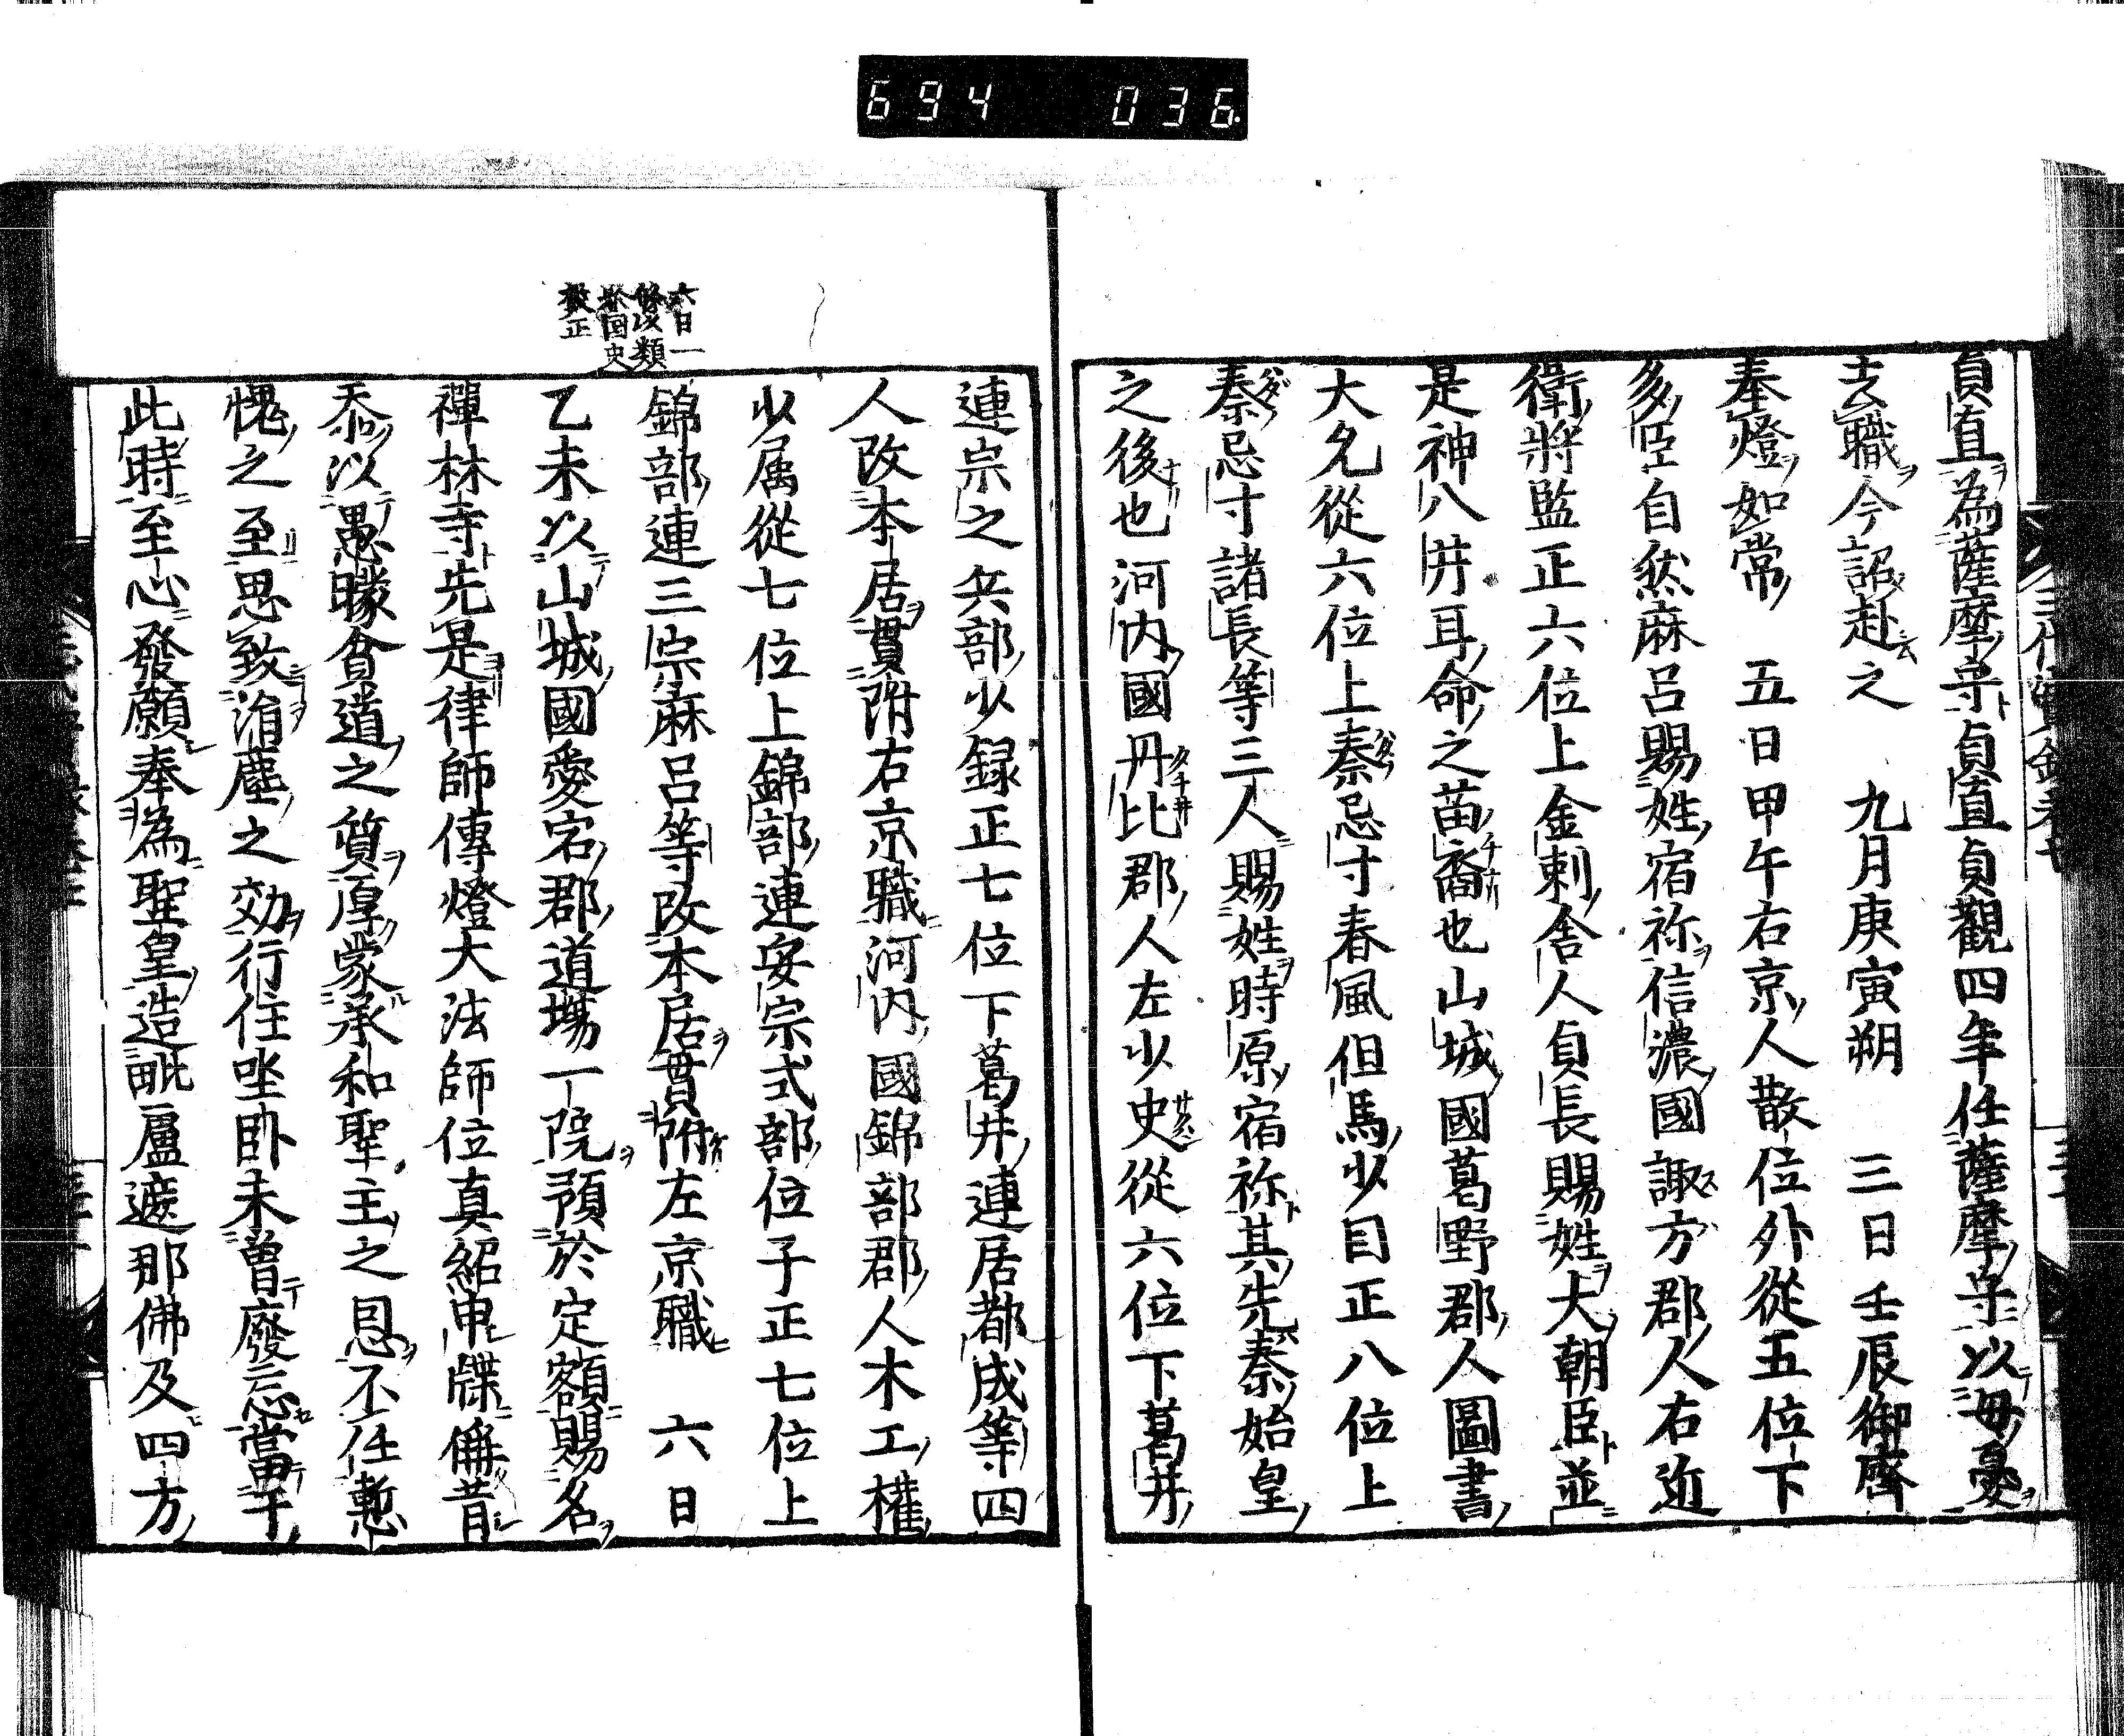 694 036
貞直為薩摩守貞直貞觀四年任薩摩守以母憂
去職今詔赴之　九月庚寅朔　三日壬辰御齋
奉燈如常　五日甲午右京人散位外從五位下
多臣自然麻呂賜姓宿祢信濃國諏方郡人右近
衛將監正六位上金刺舍人貞長賜姓大朝臣並
是神八井耳命之苗裔也山城國葛野郡人圖書
大允從六位上秦忌寸春風但馬少目正八位上
秦忌寸諸長等三人賜姓時原宿祢其先秦始皇
之後也河内國丹比郡人左少史從六位下葛井
連宗之兵部少録正七位下葛井連居都成等四
人改本居貫附右京職河内國錦部郡人木工權
少属從七位上錦部連安宗式部位子正七位上
錦部連三宗麻呂等改本居貫附左京職　六日
乙未以山城國愛宕郡道場一院預於定額賜名
禪林寺先是律師傳燈大法師位真紹申牒偁昔
忝以愚矇貧道之質厚蒙承和聖主之恩不任慙
愧之至思致涓塵之効行住坐臥未曽廢忘當于
此時至心發願奉為聖皇造毗盧遮那佛及四方
六日一
條以類
聚国史
數正